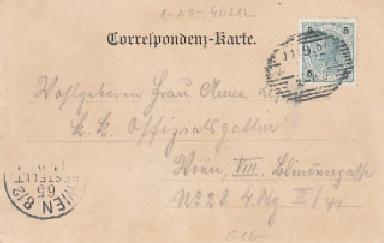 1-10-40212
Correspondenz-Karte.
5 5
Wohlgeboren Frau Anna
k. k. Offizialsgattin
Wien, VIII. Blindengasse
No 28 4. Stg II/
WIEN 8/2
65
BESTELLT
E26-